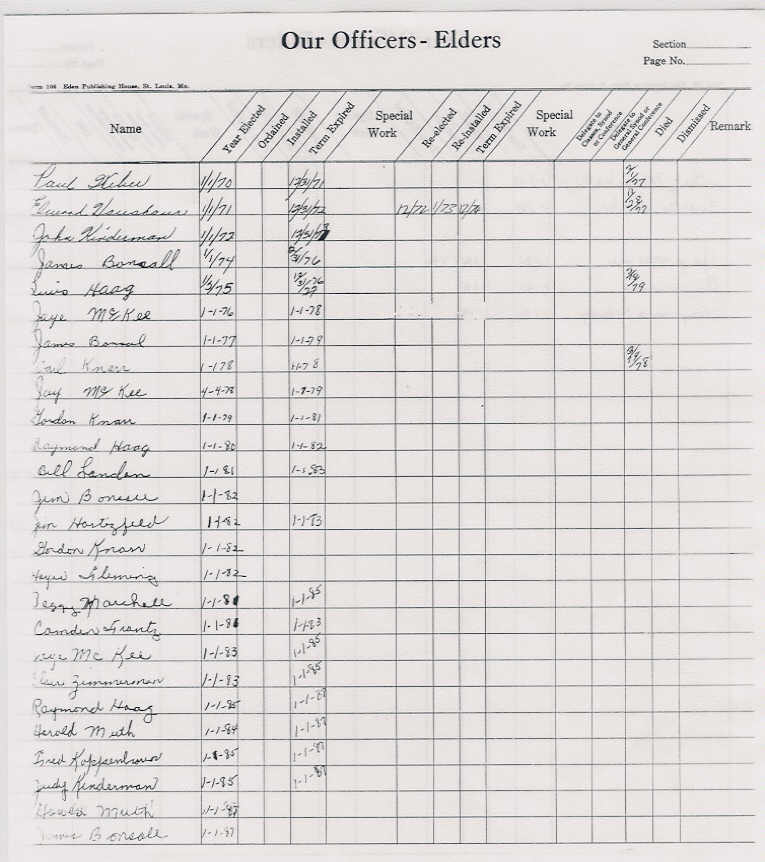 Our Officers - Elders
Section
Page No.
Form 106 Eden Publishing House, St. Louis, Mo.
Name Year Elected Ordained Installed Term Expired Special Work Re-elected Re-Installed Term Expired Special Work Delegate to Classes, Synod or Conference Delegate to General Synod or General Conference Died Dismissed Remark
Paul 1/1/70 12/31/71 2/1/77
1/1/71 12/31/72 12/72 1/73 12/28/77
John Kinderman 1/1/72 12/31/73
James Bonsall 1/1/74 12/31/76
Haag 1/3/75 12/31/76
Jaye McKee 1-1-76 1-1-78
James Bonsal 1-1-77 1-1-79
Knarr 1-1-78 1-1-78
Jay McKee 4-4-78 1-1-79
Gordon Knarr 1-1-79 1-1-81
Raymond Haag 1-1-80 1-1-82
Bill Landon 1-1-81 1-1-83
Jim 1-1-82
Hartzfeld 1-1-82 1-1-83
Gordon Knarr 1-1-82
Fleming 1-1-82
Peggy Marshall 1-1-81 1-1-85
Camden Frantz 1-1-81 1-1-83
McKee 1-1-83 1-1-85
Zimmerman 1-1-83 1-1-85
Raymond Haag 1-1-85 1-1-87
Harold Muth 1-1-84 1-1-87
Fred 1-1-85 1-1-87
Judy Kinderman 1-1-85 1-1-87
Muth 1-1-87
James Bonsall 1-1-87